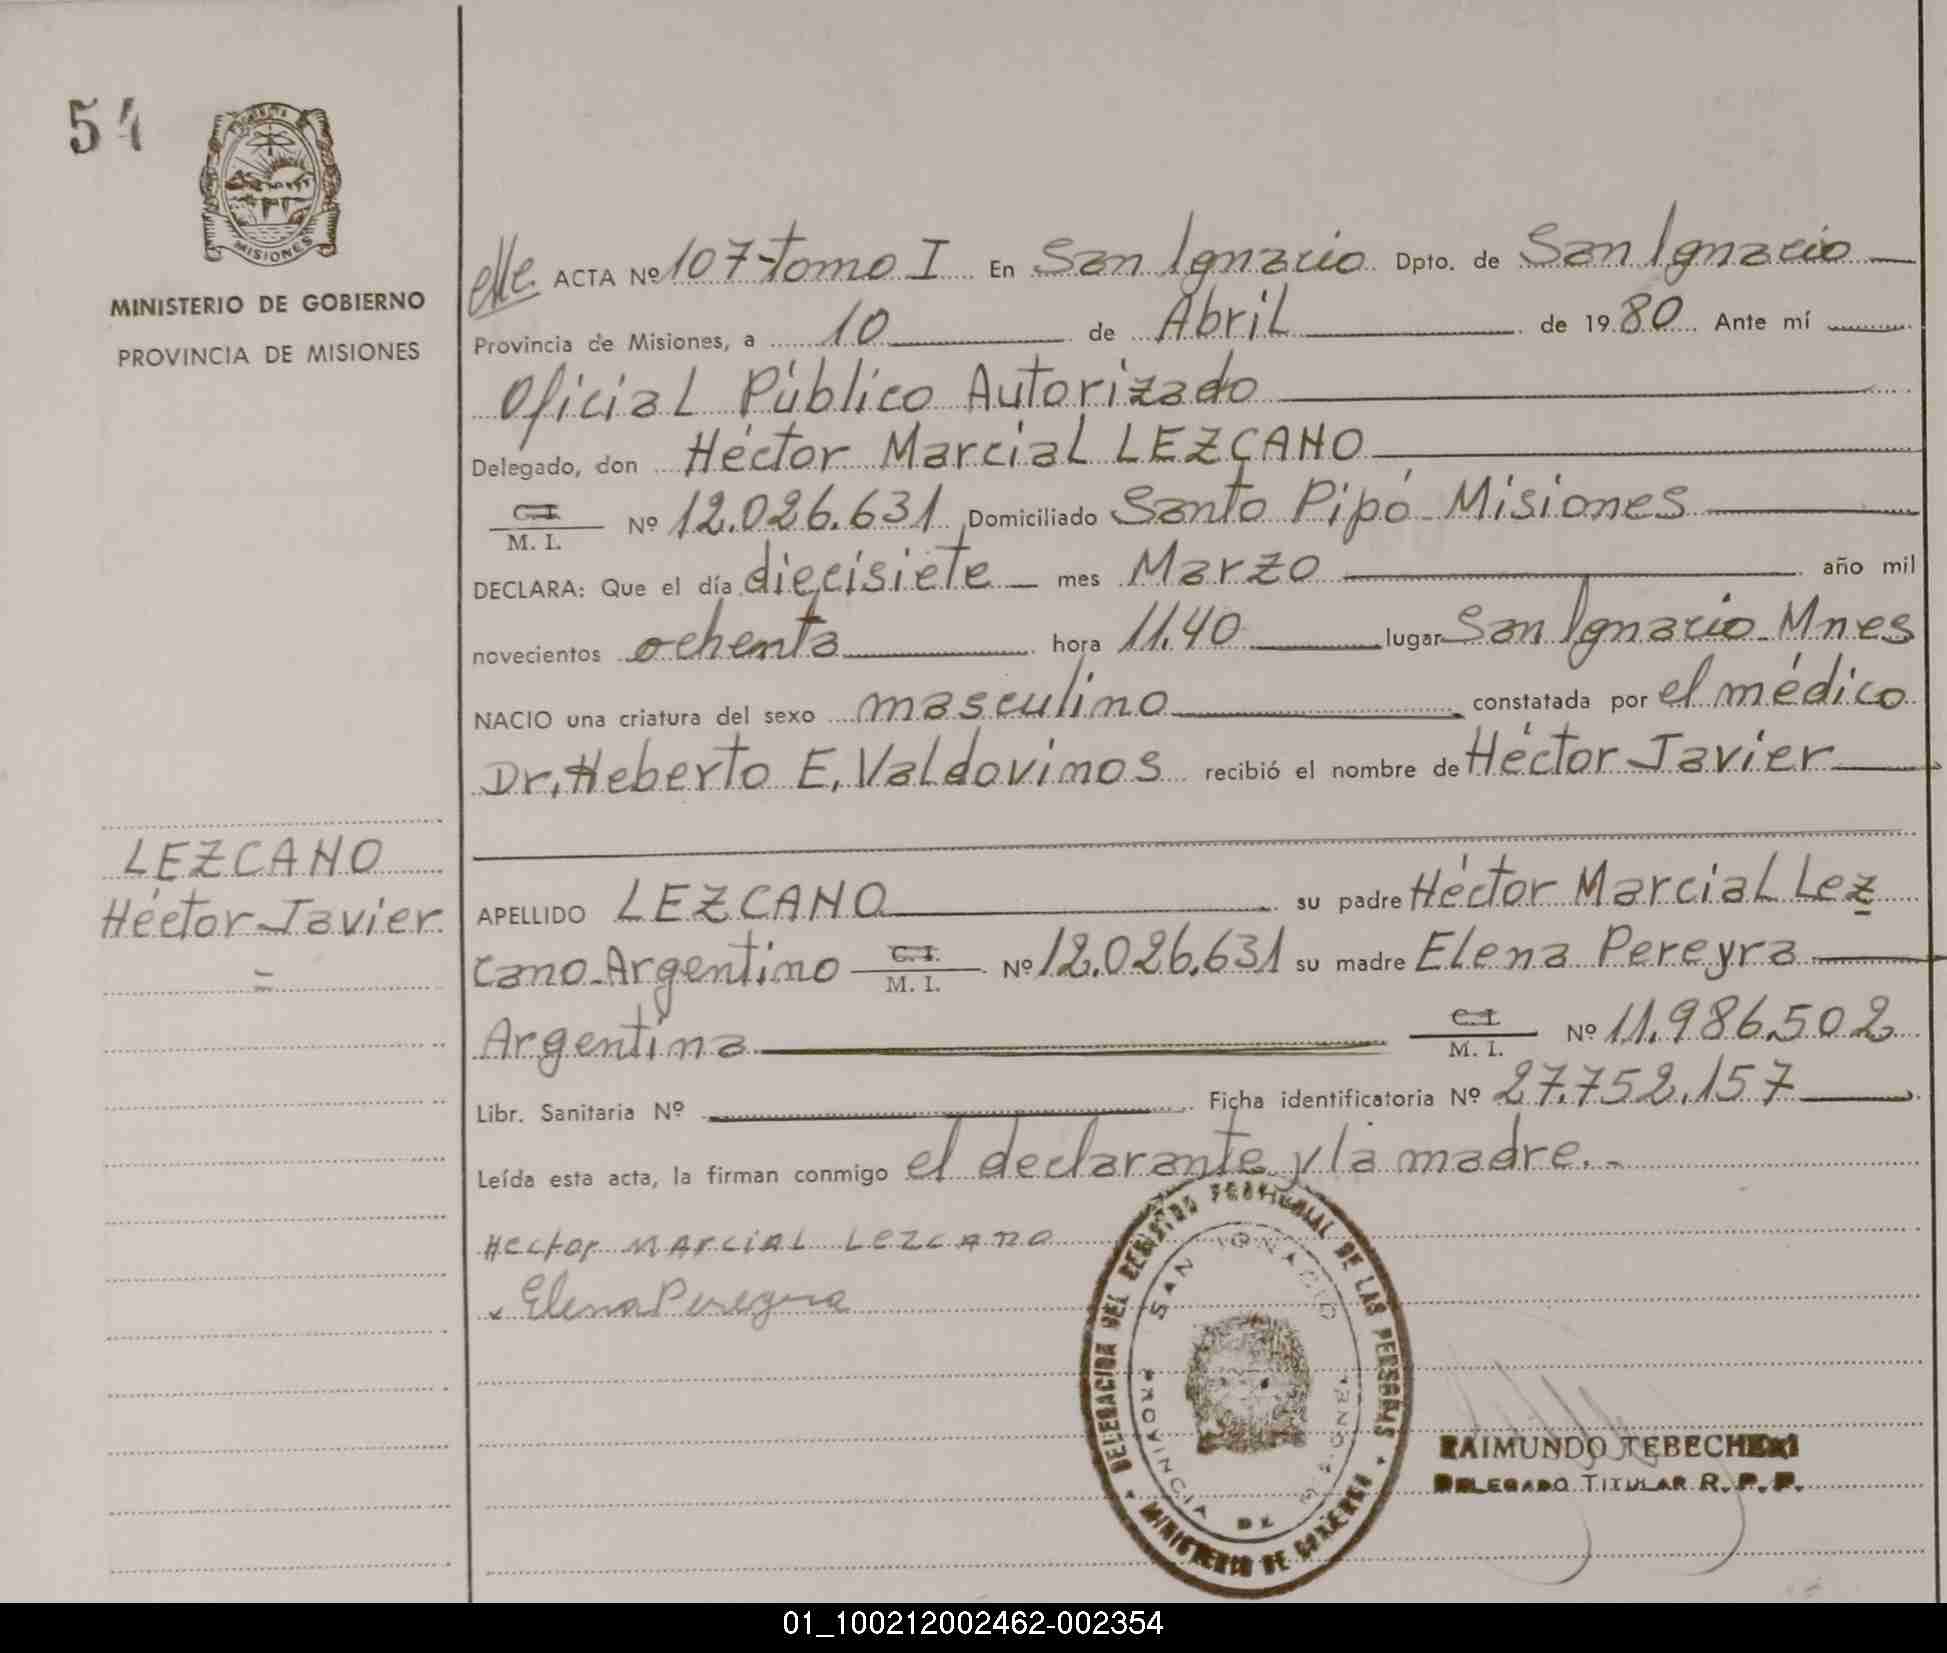 54
MISIONES
MINISTERIO DE GOBIERNO
PROVINCIA DE MISIONES
LEZCANO
Héctor Javier
ACTA Nº 107-tomo I En San Ignacio Dpto. de San Ignacio
Provincia de Misiones, a 10 de Abril de 1980 Ante mí
Oficial Público Autorizado
Delegado, don Héctor Marcial LEZCANO
C.I.
M. I. Nº 12.026.631 Domiciliado Santo Pipó - Misiones
DECLARA: Que el día diecisiete mes Marzo año mil
novecientos ochenta hora 11.40 lugar San Ignacio - Mnes
NACIO una criatura del sexo masculino constatada por el médico
Dr. Heberto E. Valdovinos recibió el nombre de Héctor Javier
APELLIDO LEZCANO su padre Héctor Marcial Lez
cano - Argentino C.I. M. I. Nº 12.026.631 su madre Elena Pereyra
Argentina C.I. M. I. Nº 11.986.502
Libr. Sanitaria Nº Ficha identificatoria Nº 27.752.157
Leída esta acta, la firman conmigo el declarante y la madre. -
Hector MARCIAL LEZCANO
Elena Pereyra
DELEGACION DEL REGISTRO PROVINCIAL DE LAS PERSONAS
MINISTERIO DE GOBIERNO
SAN IGNACIO
PROVINCIA DE MISIONES
RAIMUNDO TEBECHERI
DELEGADO TITULAR R. P. P.
01_100212002462-002354